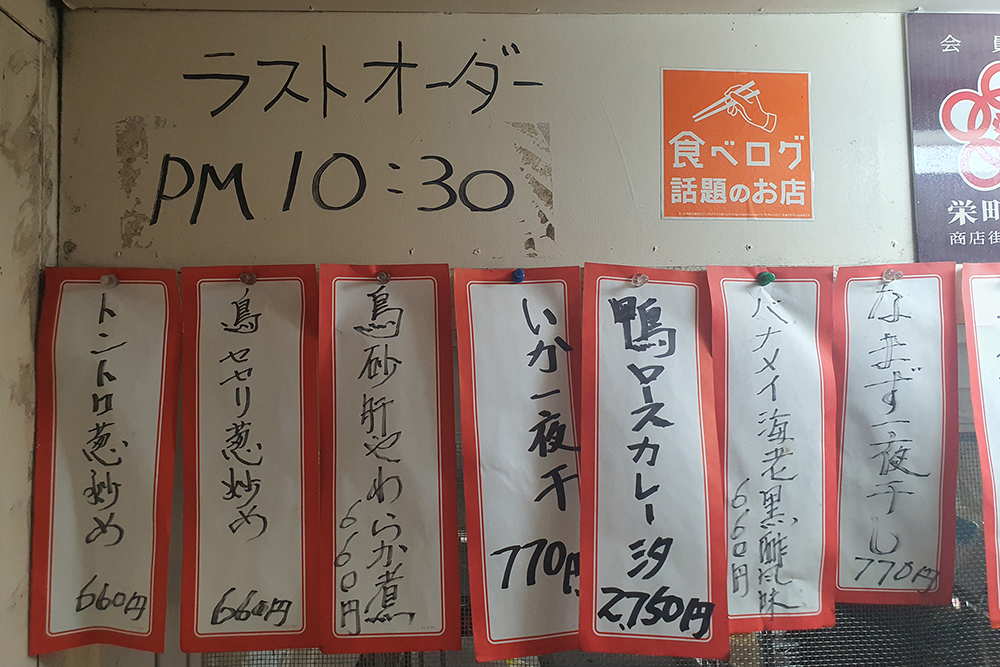 ラストオーダー
PM 10:30
食べログ
話題のお店
会員
栄町
商店街
トントロ葱炒め
660円
鳥セセリ葱炒め
660円
鳥砂肝やわらか煮
660円
いか一夜干
770円
鴨ロースカレー汐
2,750円
バナメイ海老黒酢風味
660円
なまず一夜干し
770円